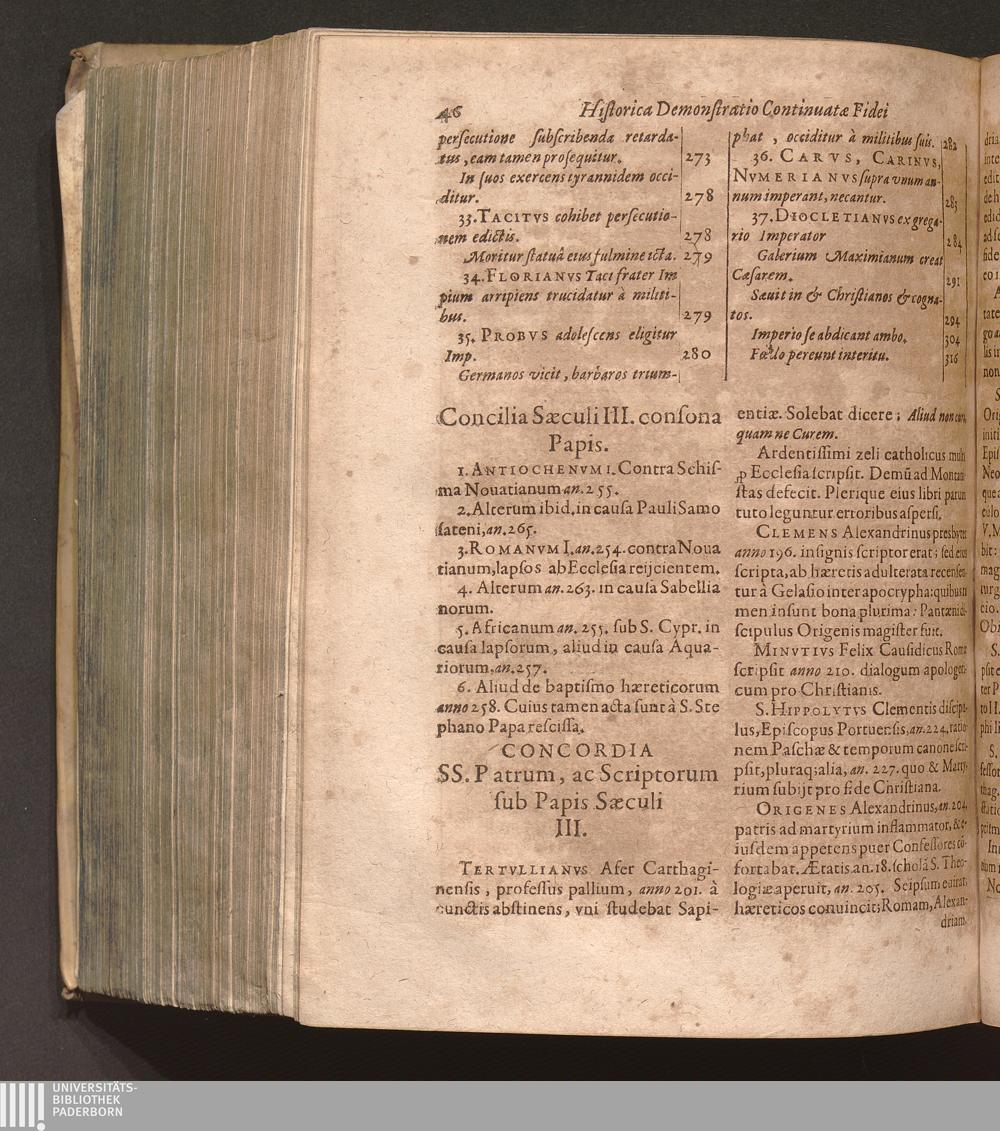 46 Hiſtorica Demonſtratio Continuatæ Fidei
perſecutione ſubſcribenda retarda-
tus, eam tamen proſequitur. 273
In ſuos exercens tyrannidem occi-
ditur. 278
33. TACITVS cohibet perſecutio-
nem edictis. 278
Moritur ſtatuâ eius fulmine icta. 279
34. FLORIANVS Taci frater Im
pium arripiens trucidatur à militi-
bus. 279
35. PROBVS adoleſcens eligitur
Imp. 280
Germanos vicit, barbaros trium-
phat, occiditur à militibus ſuis. 282
36. CARVS, CARINVS,
NVMERIANVS ſupra vnum an-
num imperant, necantur. 283
37. DIOCLETIANVS ex grega-
rio Imperator 284
Galerium Maximianum creat
Cæſarem. 291
Sæuit in & Chriſtianos & cogna-
tos. 294
Imperio ſe abdicant ambo. 304
Fœdo pereunt interitu. 316
Concilia Sæculi III. conſona
Papis.
1. ANTIOCHENVM I. Contra Schiſ-
ma Nouatianum an. 255.
2. Alterum ibid, in cauſa Pauli Samo
ſateni, an. 265.
3. ROMANVM I. an. 254. contra Noua
tianum, lapſos ab Eccleſia reijcientem.
4. Alterum an. 263. in cauſa Sabellia
norum.
5. Africanum an. 255. ſub S. Cypr. in
cauſa lapſorum, aliud in cauſa Aqua-
riorum, an. 257.
6. Aliud de baptiſmo hæreticorum
anno 258. Cuius tamen acta ſunt à S. Ste
phano Papa reſciſſa.
CONCORDIA
SS. Patrum, ac Scriptorum
ſub Papis Sæculi
III.
TERTVLLIANVS Afer Carthagi-
nenſis, profeſſus pallium, anno 201. à
cunctis abſtinens, vni ſtudebat Sapi-
entiæ. Solebat dicere; Aliud non curo,
quam ne Curem.
Ardentiſſimi zeli catholicus
ꝓ Eccleſia ſcripſit. Demũ ad Montani
ſtas defecit. Plerique eius libri parum
tuto leguntur erroribus aſperſi.
CLEMENS Alexandrinus presbyter
anno 196. inſignis ſcriptor erat; ſed eius
ſcripta, ab hæretis adulterata recenſen
tur à Gelaſio inter apocrypha: quibus
men inſunt bona plurima: Pantæni di-
ſcipulus Origenis magiſter fuit.
MINVTIVS Felix Cauſidicus Romæ
ſcripſit anno 210. dialogum
cum pro Chriſtianis.
S. HIPPOLYTVS Clementis diſcipu-
lus, Epiſcopus Portuenſis, an. 224. ratio
nem Paſchæ & temporum canone ſcri-
pſit, pluraq; alia, an. 227. quo & Marty-
rium ſubijt pro fide Chriſtiana.
ORIGENES Alexandrinus, an. 204.
patris ad martyrium inflammator, & e-
iuſdem appetens puer Confeſſores cõ-
fortabat. Ætatis an. 18. ſcholâ S. Theo-
logiæ aperuit, an. 205. Seipſum euirat,
hæreticos conuincit; Romam, Alexan-
driam
UNIVERSITÄTS-
BIBLIOTHEK
PADERBORN